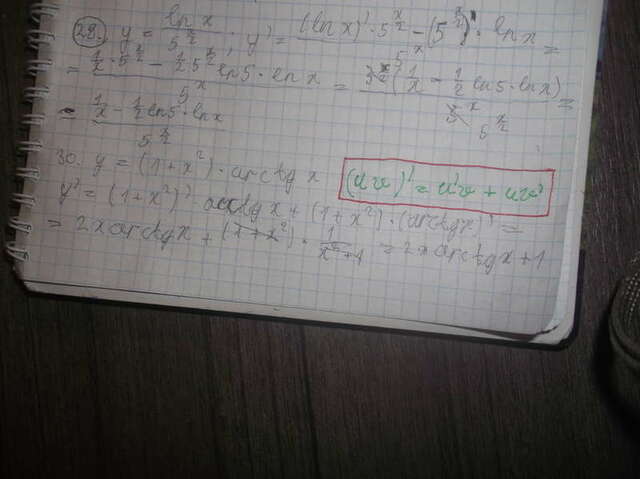 28. y = ln x / 5^(x/2) . y' = ((ln x)' · 5^(x/2) − (5^(x/2))' · ln x) / 5^x =
= (1/x · 5^(x/2) − 1/2 5^(x/2) ln 5 · ln x) / 5^x = 5^(x/2) (1/x − 1/2 ln 5 · ln x) / 5^x 5^(x/2) =
= (1/x − 1/2 ln 5 · ln x) / 5^(x/2)
30. y = (1 + x²) · arctg x
(uv)' = u'v + uv'
y' = (1 + x²)' · arctg x + (1 + x²) · (arctg x)' =
= 2x arctg x + (1 + x²) · 1/(x² + 1) = 2x arctg x + 1